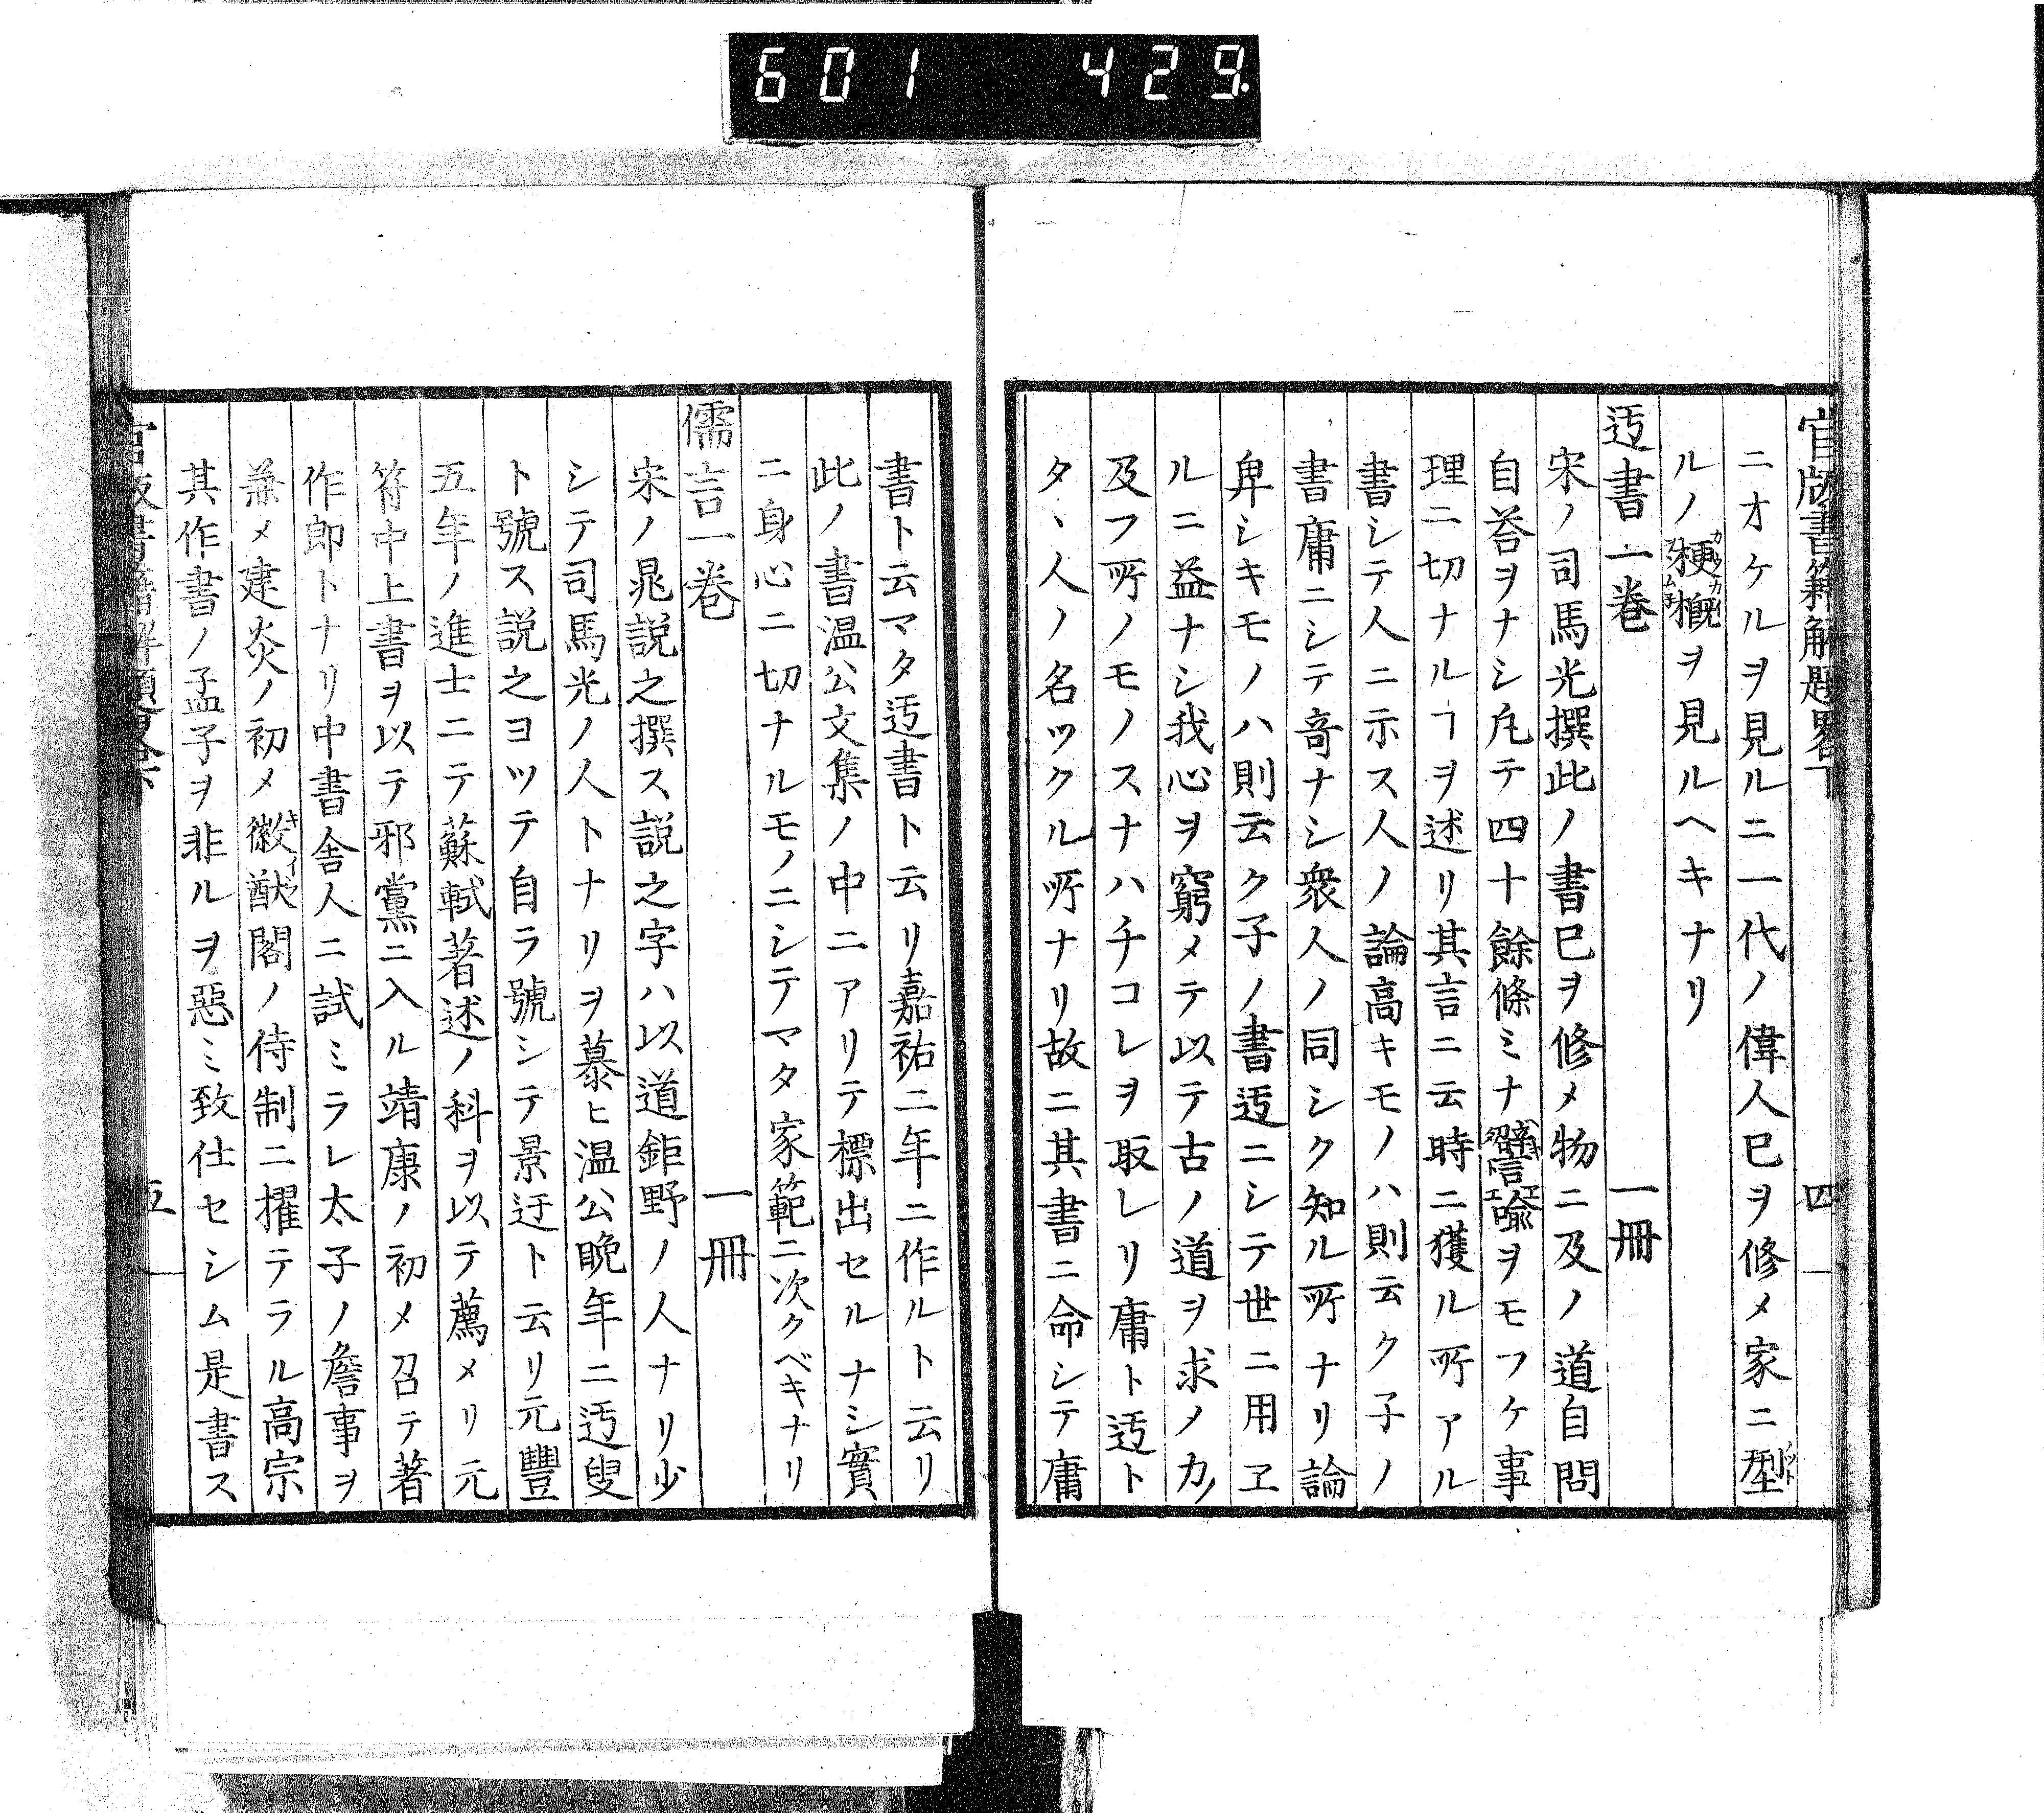 601 429.
官版書籍解題畧下 四
ニオケルヲ見ルニ一代ノ偉人已ヲ修メ家ニ型
ルノ梗概ヲ見ルヘキナリ
迃書一巻 一冊
宋ノ司馬光撰此ノ書已ヲ修メ物ニ及ノ道自問
自荅ヲナシ凢テ四十餘條ミナ譬諭ヲモツケ事
理ニ切ナルヿヲ述リ其言ニ云時ニ獲ル所アル
書シテ人ニ示ス人ノ論高キモノハ則云ク子ノ
書庸ニシテ奇ナシ衆人ノ同シク知ル所ナリ論
卑シキモノハ則云ク子ノ書迃ニシテ世ニ用ヱ
ルニ益ナシ我心ヲ窮メテ以テ古ノ道ヲ求ノカ
及フ所ノモノスナハチコレヲ取レリ庸ト迃ト
タヽ人ノ名ツクル所ナリ故ニ其書ニ命シテ庸
書ト云マタ迃書ト云リ嘉祐二年ニ作ルト云リ
此ノ書温公文集ノ中ニアリテ標出セルナシ實
ニ身心ニ切ナルモノニシテマタ家範ニ次クベキナリ
儒言一巻 一冊
宋ノ晁説之撰ス説之字ハ以道鉅野ノ人ナリ少
シテ司馬光ノ人トナリヲ慕ヒ温公晩年ニ迃叟
ト號ス説之ヨツテ自ラ號シテ景迂ト云リ元豐
五年ノ進士ニテ蘇軾著述ノ科ヲ以テ薦メリ元
符中上書ヲ以テ邪黨ニ入ル靖康ノ初メ召テ著
作郎トナリ中書舎人ニ試ミラレ太子ノ詹事ヲ
兼メ建炎ノ初メ徽猷閣ノ侍制ニ擢テラル高宗
其作書ノ孟子ヲ非ルヲ惡ミ致仕セシム是書ス
官版書籍解題畧下 五